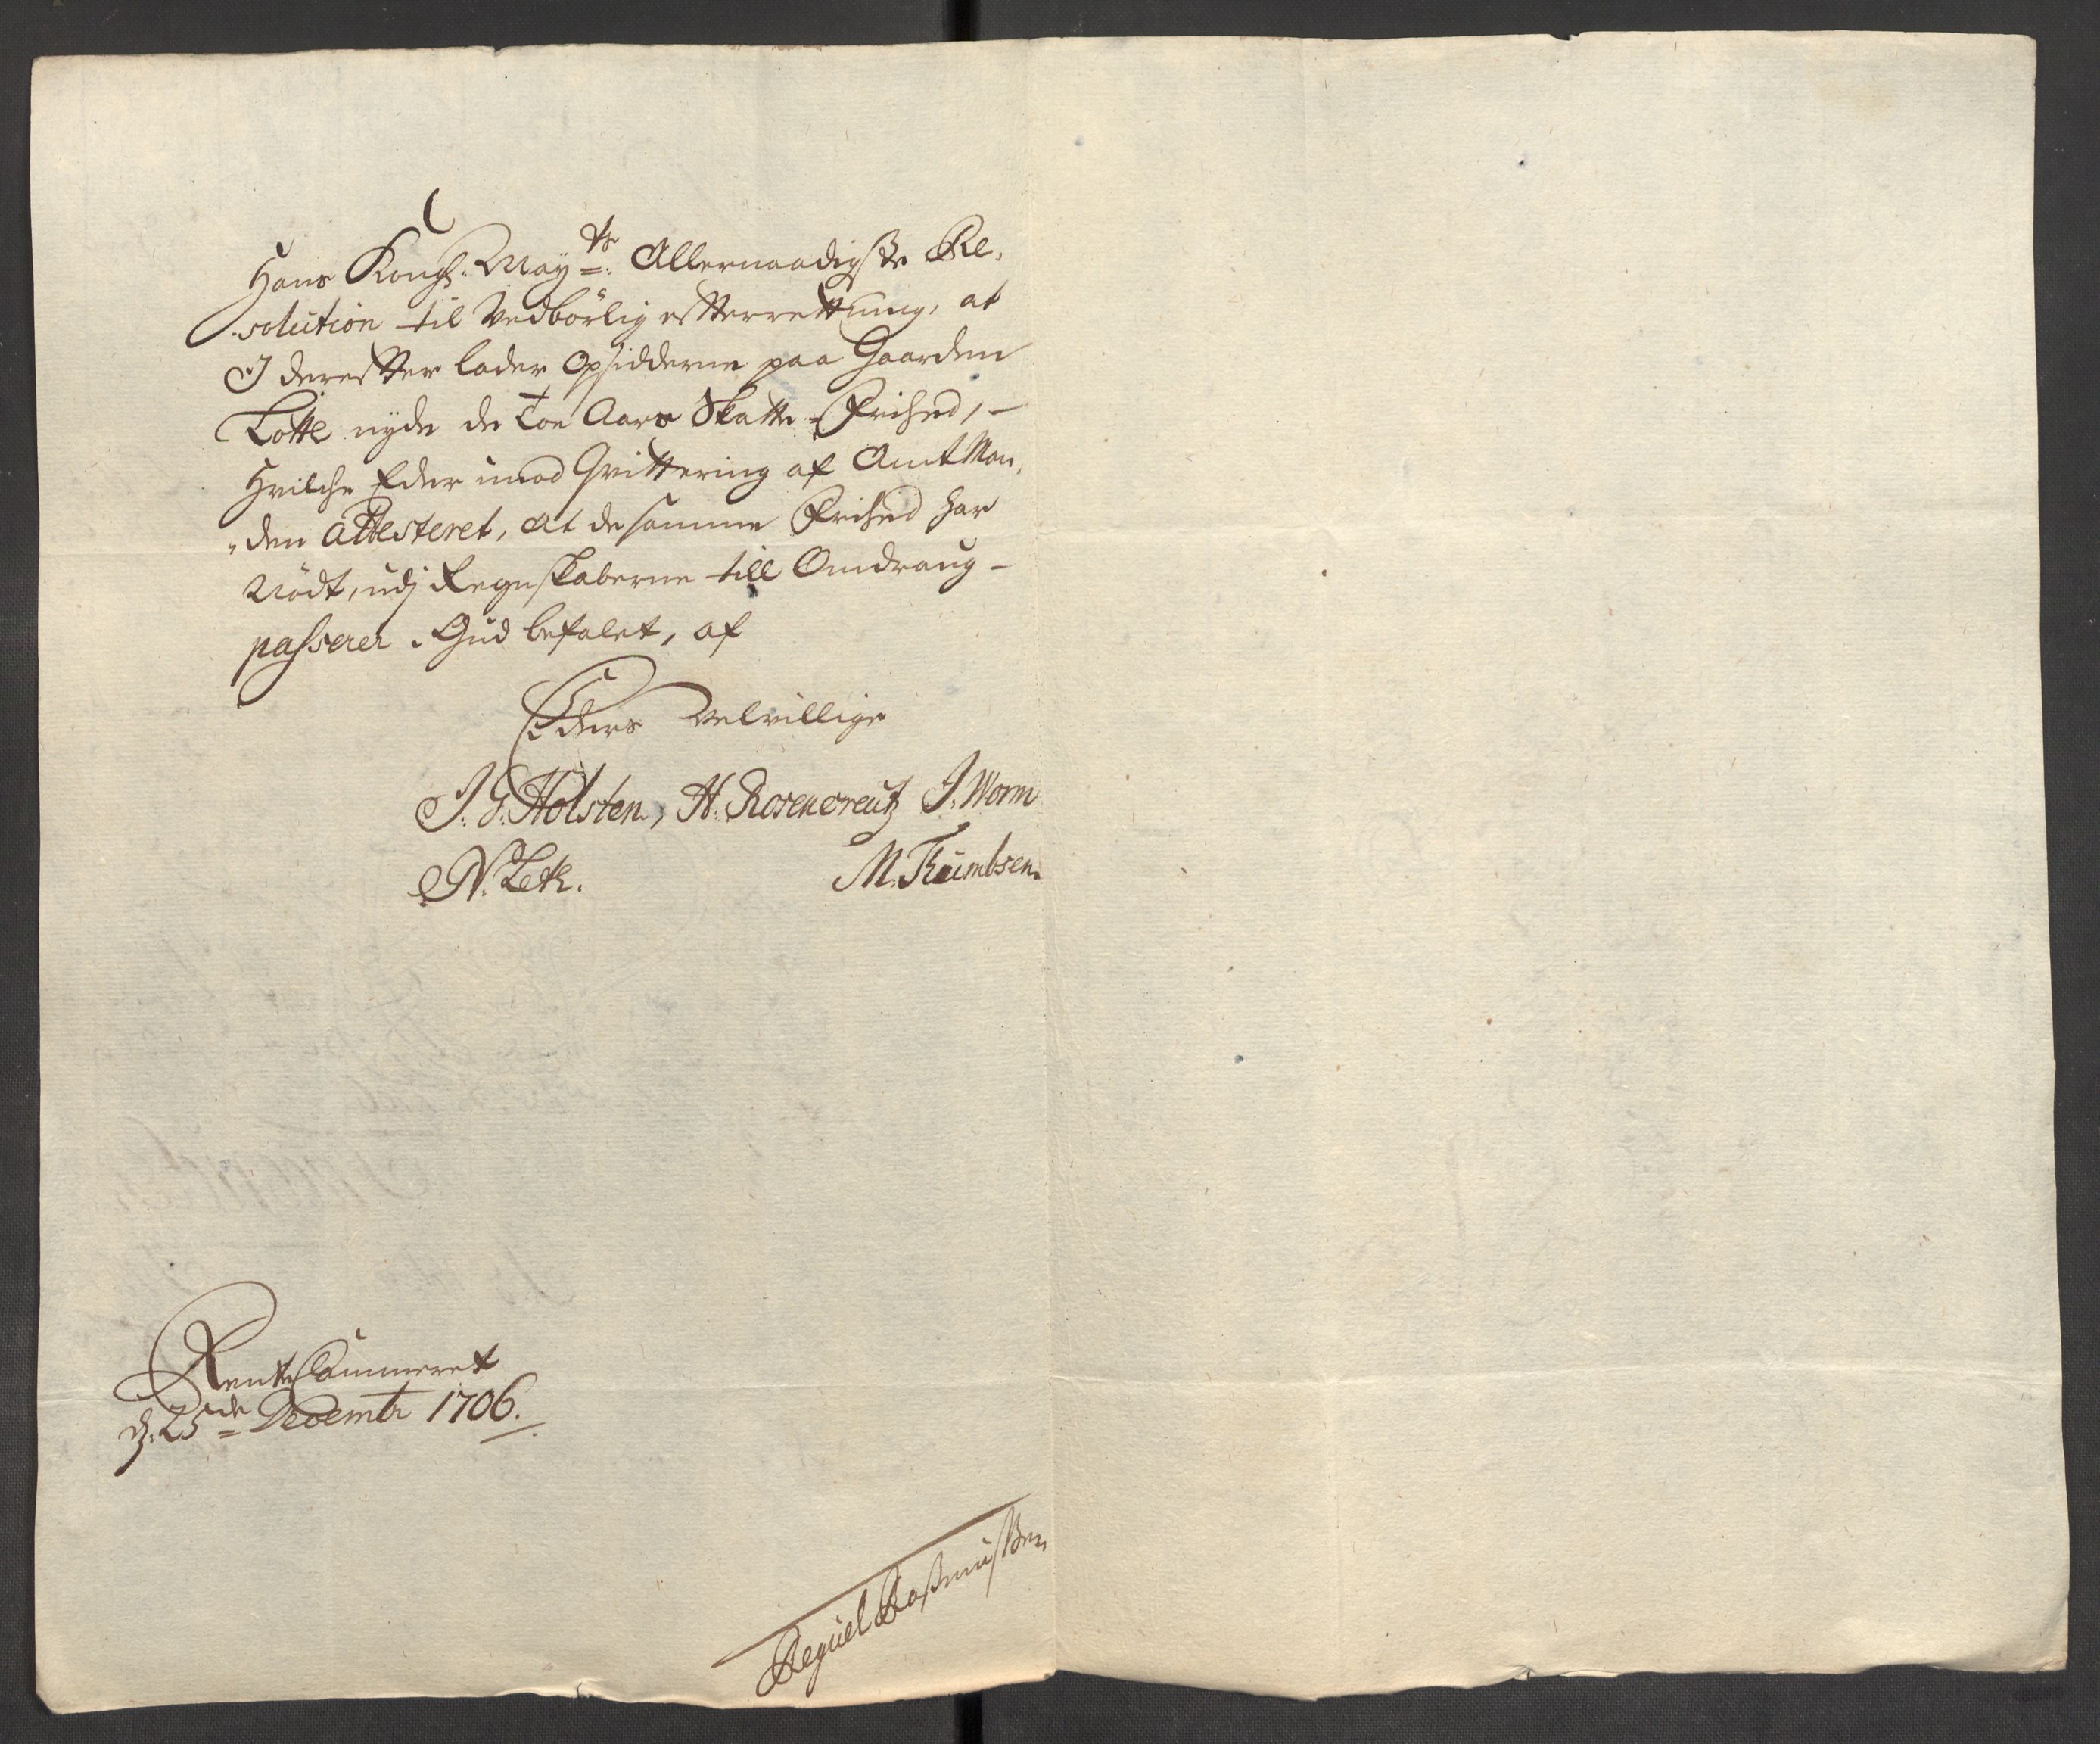 Hans Kongl: Mayts: Allernaadigste Re,
solution til Vedbörlig efterrettning, at
I derefter lader Opsidderne paa Gaarden
Lotte nyde de Toe Aars Skatte-Friehed, -
Hvilche Eder imod Qvittering af AmtMan,
"den Attesteret, at de samme Friehed har
Nödt, udj Regnskaberne till Omdrang -
passerer. Gud befalet, af
Eders Velvillige
J. G. Holsten, H. Rosencreutz J. Worm
N. Letk. M. Thumbsen.
RenteCammeret
d: 25de Decembr 1706.
Reguel Rasmussen